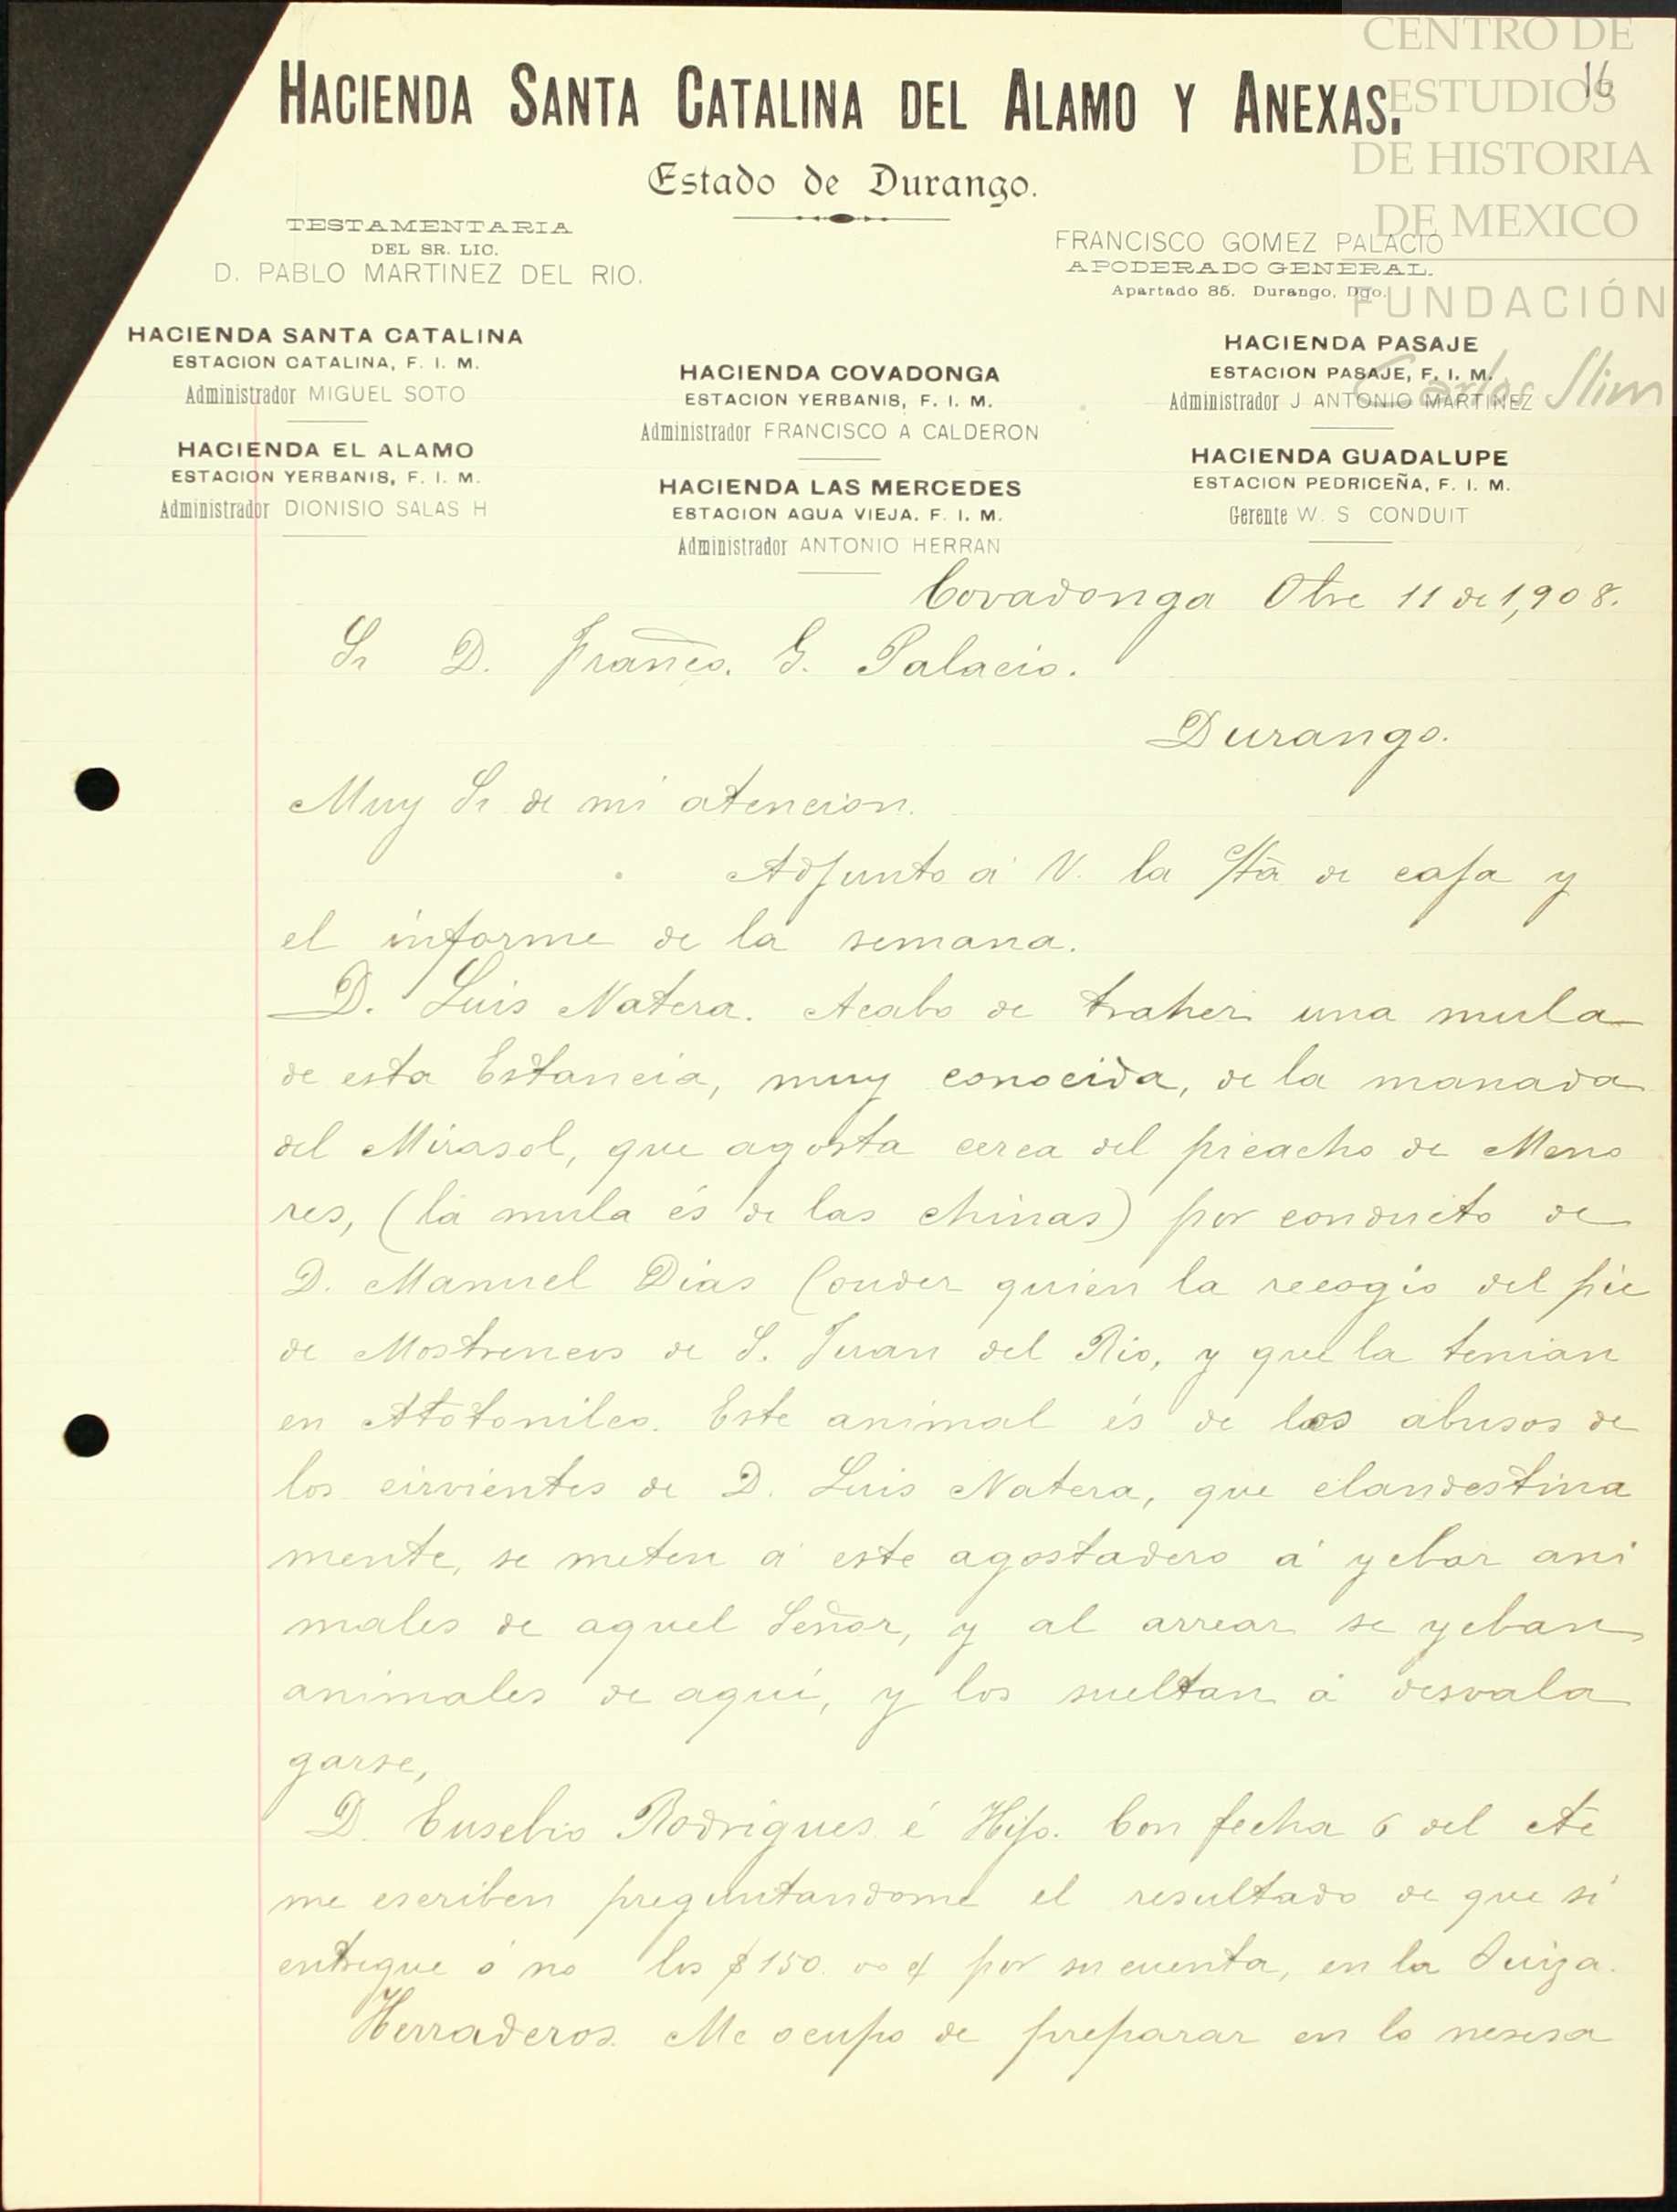 CENTRO DE
ESTUDIOS
DE HISTORIA
DE MEXICO
FUNDACIÓN
Carlos Slim
16
HACIENDA SANTA CATALINA DEL ALAMO Y ANEXAS.
Estado de Durango.
TESTAMENTARIA
DEL SR. LIC.
D. PABLO MARTINEZ DEL RIO.
FRANCISCO GOMEZ PALACIO
APODERADO GENERAL.
Apartado 85. Durango, Dgo.
HACIENDA SANTA CATALINA
ESTACION CATALINA, F. I. M.
Administrador MIGUEL SOTO
HACIENDA EL ALAMO
ESTACION YERBANIS, F. I. M.
Administrador DIONISIO SALAS H
HACIENDA COVADONGA
ESTACION YERBANIS, F. I. M.
Administrador FRANCISCO A CALDERON
HACIENDA LAS MERCEDES
ESTACION AGUA VIEJA. F. I. M.
Administrador ANTONIO HERRAN
HACIENDA PASAJE
ESTACION PASAJE, F. I. M.
Administrador J ANTONIO MARTINEZ
HACIENDA GUADALUPE
ESTACION PEDRICEÑA, F. I. M.
Gerente W. S CONDUIT
Covadonga Otre 11 de 1,908.
Sr D. Franco. G. Palacio.
Durango.
Muy Sr de mi atencion.
Adjunto á V. la de caja y
el informe de la semana.
D. Luis Natera. Acabo de traher una mula
de esta Estancia, muy conocida, de la manada
del Mirasol, que agosta cerca del picacho de Meno
res, (la mula és de las chinas) por conducto de
D. Manuel Dias Couder quien la recogio del pie
de Mostrencos de S. Juan del Rio, y que la tenian
en Atotonilco. Este animal és de los abusos de
los cirvientes de D. Luis Natera, que clandestina
mente, se meten á este agostadero á yebar ani
males de aquel Señor, y al arrear se yeban
animales de aqui, y los sueltan á desvala
garse,
D. Eusebio Rodrigues é Hijo. Con fecha 6 del Ate
me escriben preguntandome el resultado de que si
entregue ó no los $150.00 por su cuenta, en la Suiza.
Herraderos. Me ocupo de preparar en lo nesesa